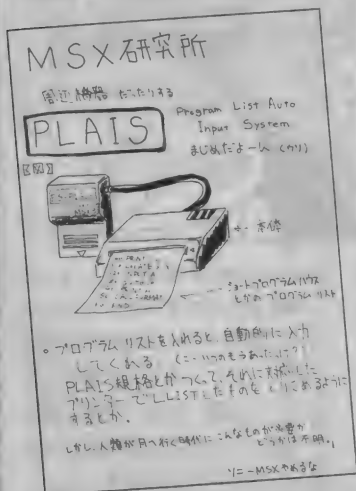 MSX研究所
周辺機器 だったりする
PLAIS
Program List Auto
Input System
まじめだよーん (ウソ)
←本体
ショートプログラムハウス
とかの プログラムリスト
○プログラムリストを入れると、自動的に入力
してくれる
PLAIS規格とかつくって、それに対応した
プリンターでLLISTしたものをとりこめるように
するとか。
しかし、人類が月へ行く時代にこんなものが必要か
どうかは不明。
ソニーMSXやめるな